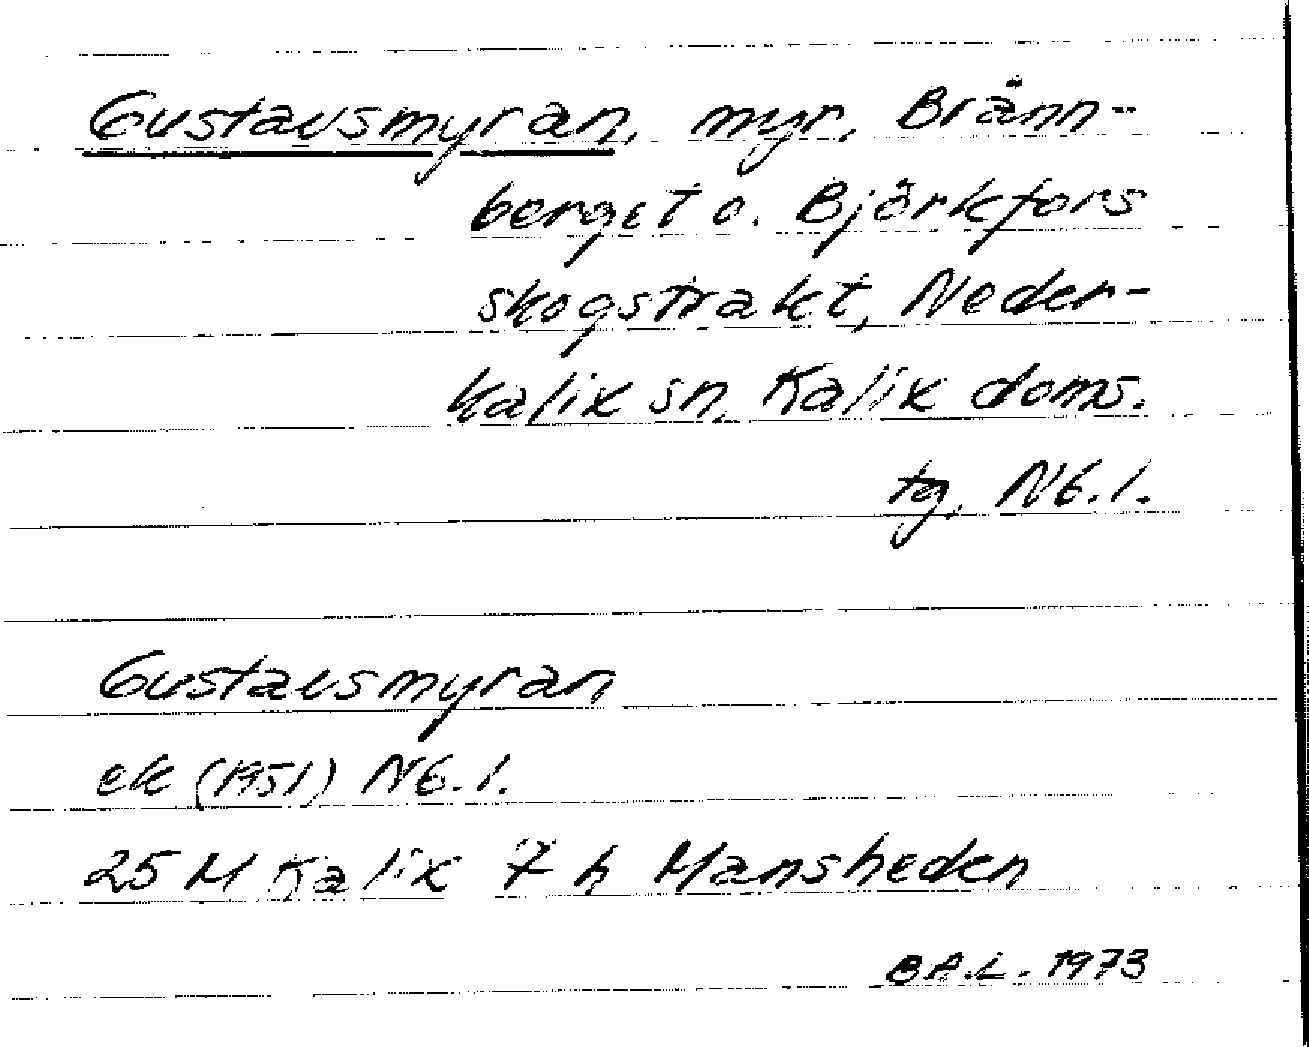 Gustavsmyran, myr, Bränn-
berget o. Björkfors
skogstrakt, Neder-
kalix sn, Kalix doms.
tg, Nb.l.
Gustavsmyran
ek (1951) Nb.l.
25 M Kalix 7 h Mansheden
B A.L. 1973